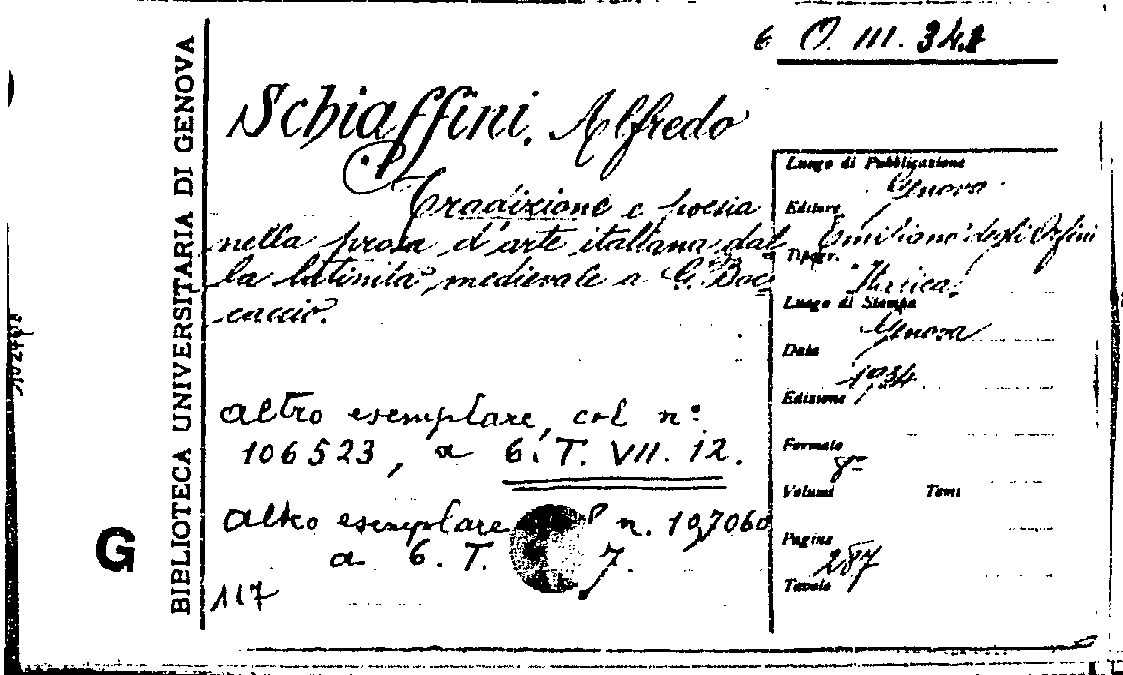 6 O. III. 348
BIBLIOTECA UNIVERSITARIA DI GENOVA
G
Schiaffini, Alfredo
Tradizione e poesia
nella prosa d'arte italiana dal
la latinità medievale a G. Boc
caccio.
altro esemplare, col n.º
106523, a 6. T. VII. 12.
altro esemplare n. 107060
a 6. T. 7.
117
Luogo di Pubblicazione
Genova
Editore
Emiliano degli Orfini
Tipogr.
Italica
Luogo di Stampa
Genova
Data
1934
Edizione
Formato
8º
Volumi Tomi
Pagine
287
Tavole